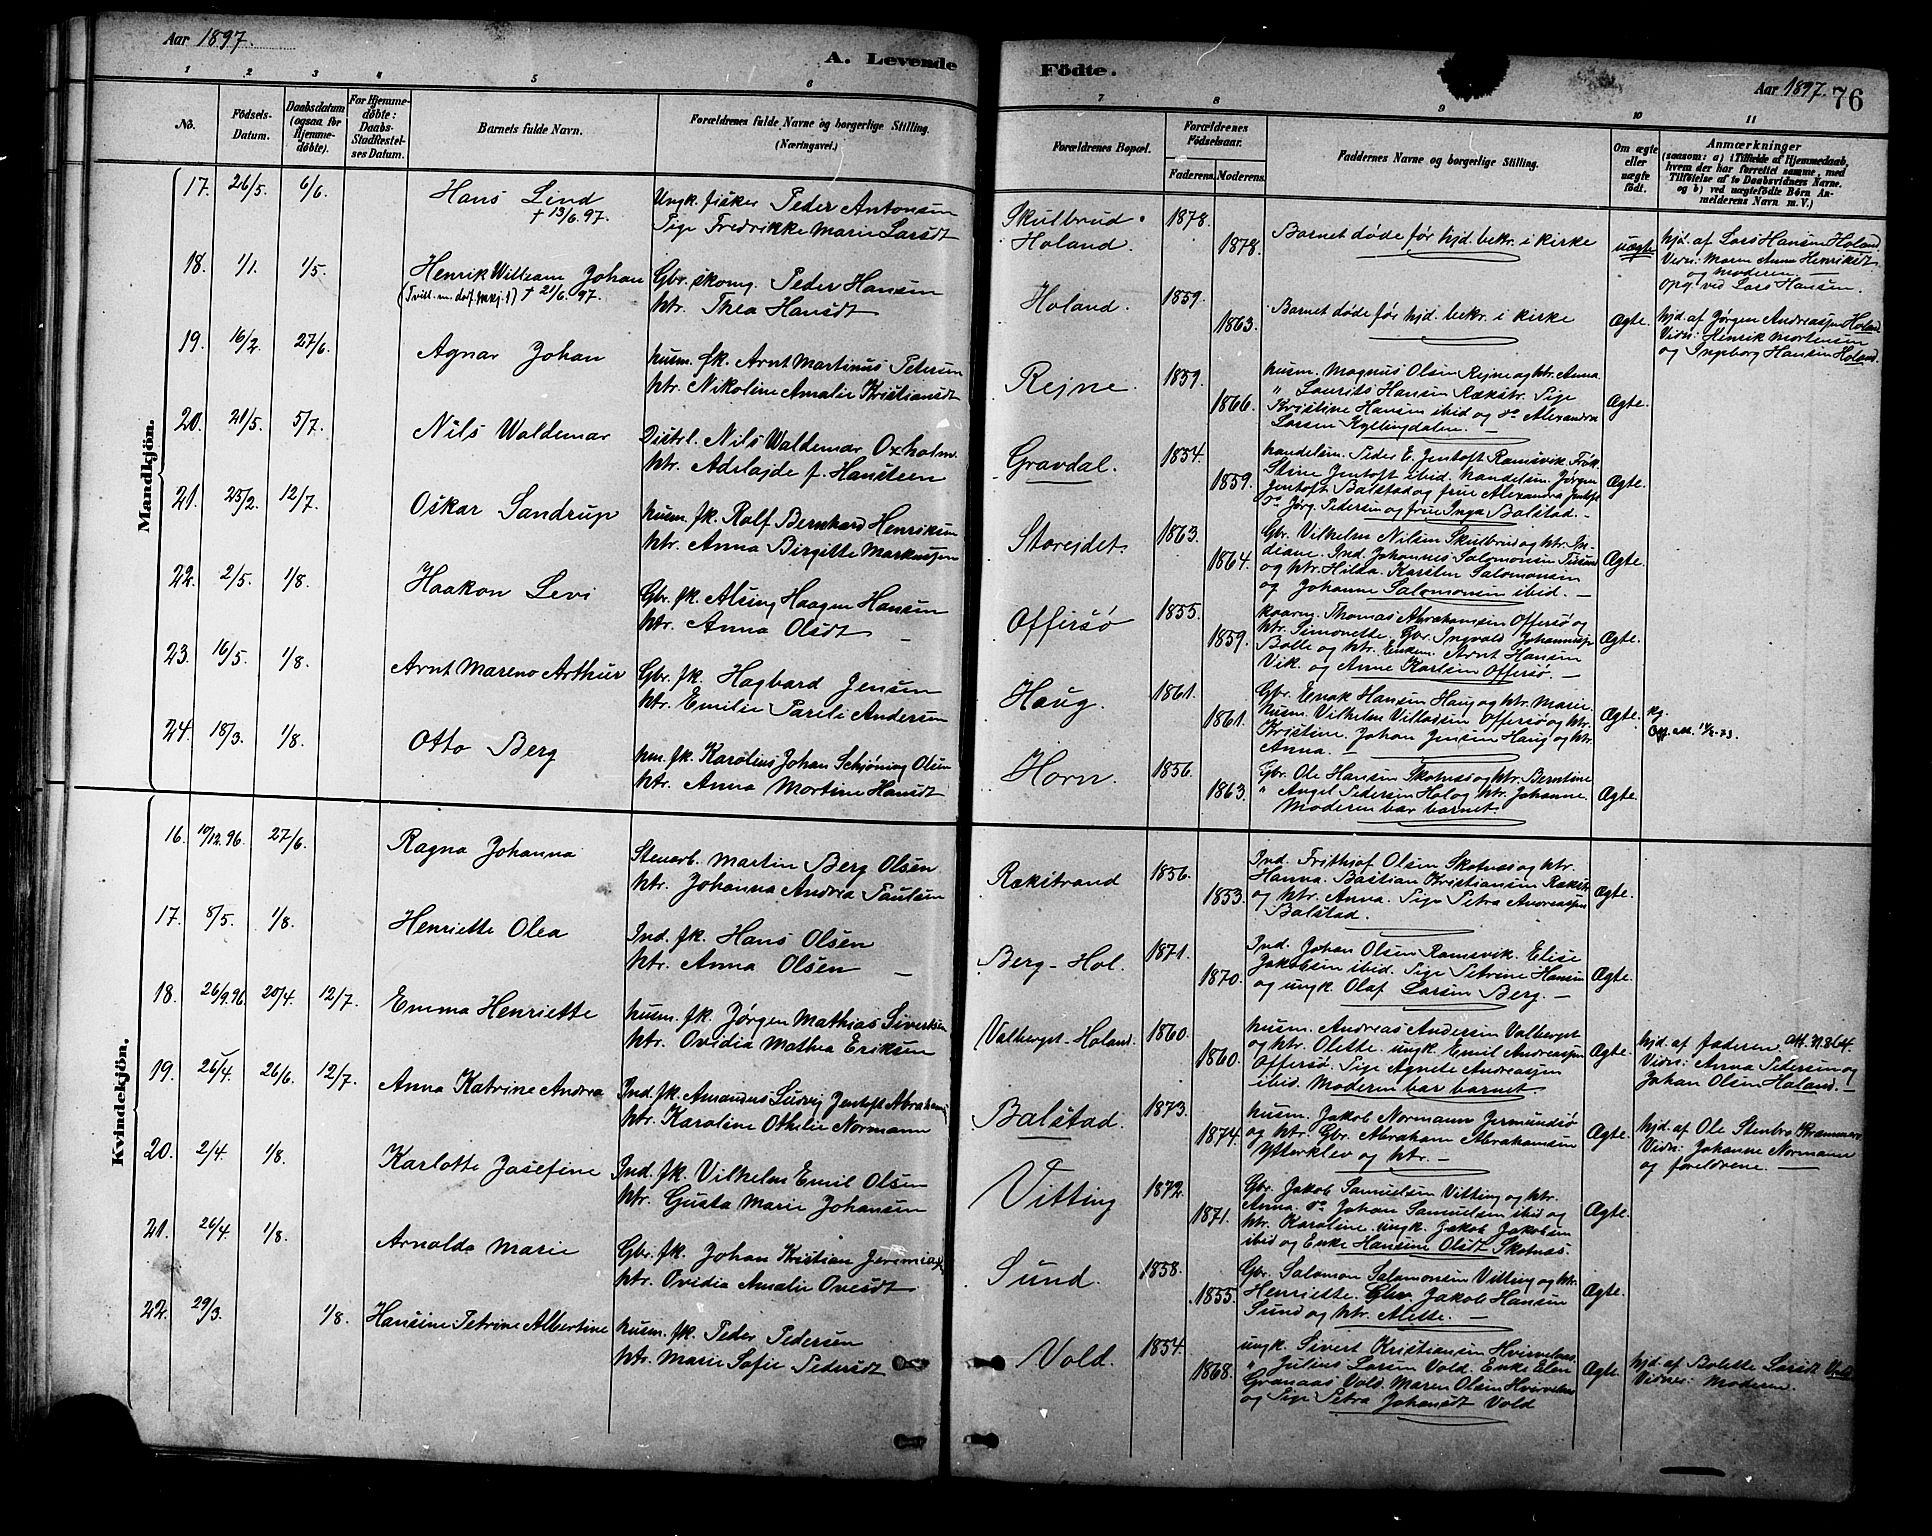 Aar 1897.
A. Levende
Födte.
Aar 1897.
76
1 2 3 4 5 6 7 8 9 10 11
No.
Födsels-
Datum.
Daabsdatum
(ogsaa for
Hjemme-
døbte).
For Hjemme-
døbte:
Daabs-
Stadfestel-
ses Datum.
Barnets fulde Navn.
Forældrenes fulde Navne og borgerlige Stilling.
(Næringsvei.)
Forældrenes Bopæl.
Forældrenes
Födselsaar.
Faderens. Moderens.
Faddernes Navne og borgerlige Stilling.
Om ægte
eller
uægte
født.
Anmærkninger
(saasom: a) i Tilfælde af Hjemmedaab,
hvem der har forrettet samme, med
Tilføielse af to Daabsvidners Navne.
og b) ved uægtefödte Börn An-
melderens Navn m. V.)
Mandkjön.
17. 26/5. 6/6. Hans Lind
+ 13/6. 97.
Ungk. fisker Peder Antonsen
Pige Fredrikke Marie Larsdt
Skulbrud
Holand.
1878.
1878.
Barnet døde før hjd. bekr. i kirke
uægte
hjd. af Lars Hansen Holand.
Vidn: Maren Anna Henriksdt
og moderen. —
opg. ved Lars Hansen.
18. 1/1. 1/5. Henrik William Johan
+ 21/6. 97.
Gbr. skomg. Peder Hansen
htr. Thea Hansdt
Holand.
1859.
1863.
Barnet døde før hjd. bekr. i kirke
Ægte.
hjd. af Jørgen Andreassen Holand
Vidn: Henrik Mortensen
og Ingeborg Hansen Holand.
19. 16/2. 27/6. Agnar Johan
husm. fk. Arnt Martinus Petersen
htr. Nikoline Amalie Kristiansdt
Rejne.
1859.
1866.
husm. Magnus Olsen Rejne og htr. Anna.
" Laurits Hansen Rækstr. Pige
Kristine Hansen ibid og do Alexandra
Larsen Kyllingdalen. —
Ægte.
20. 21/5. 5/7. Nils Waldemar
Distrl. Nils Waldemar Oxholm.
htr. Adelajde f. Hansteen
Gravdal.
1854.
1859.
handelsm. Peder E. Jentoft Ramsvik. Frøk.
Stine Jentoft ibid. handelsm. Jørgen
Jentoft Balstad og frue Alexandra Jentoft
do Jørg. Pedersen og frue Inga Balstad. —
Ægte.
21. 25/2. 12/7. Oskar Sandrup
husm. fk. Rolf Bernhard Henriksen
htr. Anna Birgitte Markussen
Storejdet
1863.
1864.
Gbr. Vilhelm Nilsen Skulbrud og htr. In-
diane. Ind. Johannes Salomonsen
og htr. Hilda. Karsten Salomonsen
og Johanne Salomonsen ibid. —
Ægte.
22. 2/5. 1/8. Haakon Levi
Gbr. fk. Alsing Haagen Hansen
htr. Anna Olsdt —
Offersø
1855.
1859.
kaarm. Thomas Abrahamsen Offersø og
htr. Simonette. Gbr. Ingvald Johannessen
Bolle og htr. Enkem. Arnt Hansen
Vik. og Anne Karlsen Offersø. —
Ægte.
23. 16/5. 1/8. Arnt Mareno Arthur
Gbr. fk. Hagbard Jensen
htr. Emilie Pareli Andersen
Haug.
1861.
1861.
Gbr. Enok Hansen Haug og htr. Marie.
husm. Vilhelm Villadsen Offersø og htr.
Kristine. Johan Jensen Haug og htr.
Anna. —
Ægte.
24. 18/3. 1/8. Otto Berg
hm. fk. Karolius Johan Schjøning Olsen
htr. Anna Mortine Hansdt
Horn.
1856.
1863.
Gbr. Ole Hansen Skotnes og htr. Berntine
" Angel Pedersen Hol og htr. Johanne.
Moderen bar barnet.
Ægte.
Kvindekjön.
16. 10/12. 96. 27/6. Ragna Johanna
Stenarb. Martin Berg Olsen
htr. Johanna Andrea Paulsen
Rækstrand
1856.
1853.
Ind. Frithjof Olsen Skotnes og htr.
Hanna. Bastian Kristiansen Rækst.
og htr. Anna. Pige Petra Andreassen
Balstad. —
Ægte.
17. 8/5. 1/8. Henriette Olea
Ind. fk. Hans Olsen
htr. Anna Olsen —
Berg-Hol.
1871.
1870.
Ind. Johan Olsen Ramsvik. Elise
Jakobsen ibid. Pige Petrine Hansen
og ungk. Olaf Larsen Berg. —
Ægte.
18. 26/9. 96. 20/4. 12/7. Emma Henriette
husm. fk. Jørgen Mathias Sivertsen
htr. Ovidia Mathea Eriksen
Valberget-Holand.
1860.
1860.
husm. Andreas Andersen Valberget
og htr. Olette. ungk. Emil Andreassen
Offersø. Pige Agnete Andreassen
ibid. Moderen bar barnet.
Ægte.
hjd. af faderen.
Vidn: Anna Pedersen og
Johan Olsen Holand. —
19. 26/4. 26/6. 12/7. Anna Katrine Andrea
Ind. fk. Amandus Ludvig Jentoft Abrahams.
htr. Karoline Othilie Normann
Balstad.
1873.
1874.
husm. Jakob Normann Jermundsø
og htr. Gbr. Abraham Abrahamsen
Ytterklev og htr. —
Ægte.
hjd. af Ole Stenbro
Vidn: Johanne Normann
og foreldrene. —
20. 2/4. 1/8. Karlotte Josefine
Ind. fk. Vilhelm Emil Olsen
htr. Gusta Marie Johansen
Vitting
1872.
1871.
Gbr. Jakob Samuelsen Vitting og htr.
Anna. do Johan Samuelsen ibid og
htr. Karoline. ungk. Jakob Jakobsen
ibid og Enke Hansine Olsdt Skotnes.
Ægte.
21. 26/4. 1/8. Arnolda Marie
Gbr. fk. Johan Kristian Jeremias.
htr. Ovidia Amalie Ovesdt
Sund.
1858.
1855.
Gbr. Salomon Salomonsen Vitting og htr.
Henriette. Gbr. Jakob Hansen
Sund og htr. Alette. —
Ægte.
22. 29/3. 1/8. Hansine Petrine Albertine
husm. fk. Peder Pedersen
htr. Marie Sofie Pedersdt
Vold.
1854.
1868.
ungk. Sivert Kristiansen Hvirvelnes.
" Julius Larsen Vold. Enke Elen
Granaas Vold. Maren Olsen Hvirvelnes
og Pige Petra Johansdt Vold
Ægte.
hjd. af Bolette Larsdt Vold
Vidnes: Moderen.